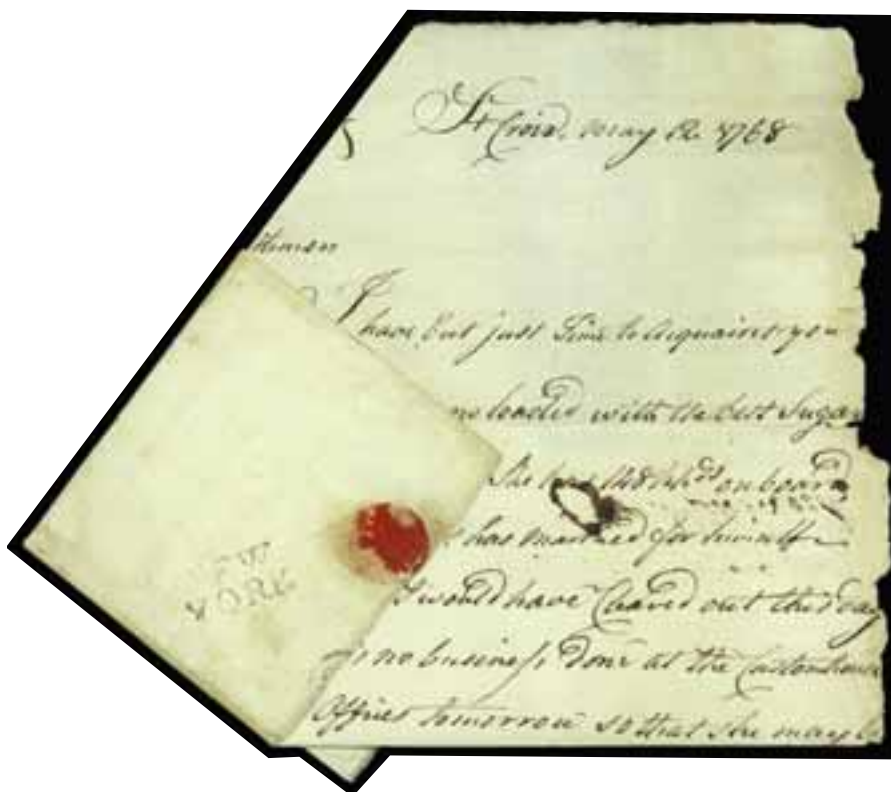 St Croix, may 12 1768
I have but just Time to Acquaint you
loaded with the best Sugar
She has hhds on board
has marked for himself
I would have Cleared out this day
no business done at the Customhouse
Offices tomorrow so that she may
NEW
YORK